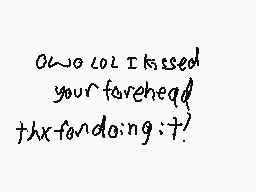 owo LOL I kissed
your forehead
thx for doing it!